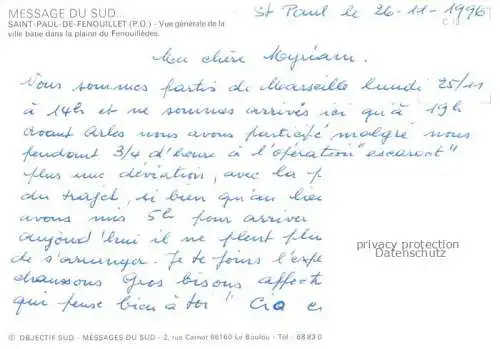 MESSAGE DU SUD...
SAINT-PAUL-DE-FENOUILLET (P.O.) - Vue générale de la
ville bâtie dans la plaine du Fenouillèdes.
St Paul le 26-11-1996
Ma chère Myriam.
Nous sommes partis de Marseille lundi 25/11
à 14h et ne sommes arrivés ici qu'à 19h
avant Arles nous avons participé malgré nous
pendant 3/4 d'heure à l'opération "escargot"
plus une déviation, avec la p
du trajet, si bien qu'au lieu
avons mis 5h pour arriver
aujourd'hui il ne pleut plu
de s'arranger. Je te fais l'expé
chaussons Gros bisous affect
qui pense bien à toi"
privacy protection
Datenschutz
© OBJECTIF SUD - MESSAGES DU SUD - 2, rue Carnot 66160 Le Boulou - Tél : 68 83 0